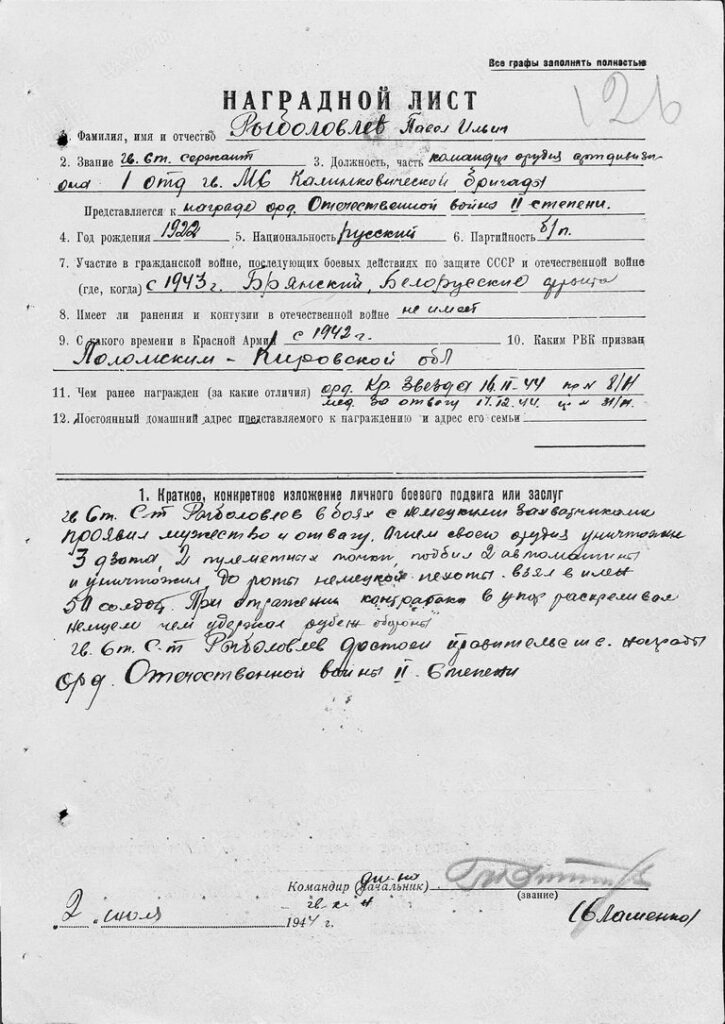 Все графы заполнять полностью
126
НАГРАДНОЙ ЛИСТ
1. Фамилия, имя и отчество Рыболовлев Павел Ильич
2. Звание гв. ст. сержант 3. Должность, часть командир орудия артдивизи-
она 1 отд гв. МБ Калинковической бригады
Представляется к награде орд. Отечественной война II степени.
4. Год рождения 1922 5. Национальность русский 6. Партийность б/п.
7. Участие в гражданской войне, последующих боевых действиях по защите СССР и отечественной войне
(где, когда) с 1943 г. Брянский, Белорусский фронта
8. Имеет ли ранения и контузии в отечественной войне не имеет
9. С какого времени в Красной Армии с 1942 г. 10. Каким РВК призван
Поломским - Кировской обл
11. Чем ранее награжден (за какие отличия) орд. Кр. Звезда 16.II.44 пр N 8/Н
мед. за отвагу 44. 31/н.
12. Постоянный домашний адрес представляемого к награждению и адрес его семьи
1. Краткое, конкретное изложение личного боевого подвига или заслуг
гв Ст. С-т Рыболовлев в боях с немецкими захватчиками
проявил мужество и отвагу. Огнем своего орудия уничтожил
3 дзота, 2 пулеметных точки, подбил 2 автомашины
и уничтожил до роты немецкой пехоты. взял в плен
50 солдат. При отражении контратаки в упор расстреливал
немцев чем удержал рубеж обороны
гв. Ст. С-т Рыболовлев достоен правительств. награды
орд. Отечественной войны II Степени
Командир (начальник) див-на
(звание)
гв. к-н
2 июля 1944 г.
(Влашенко)